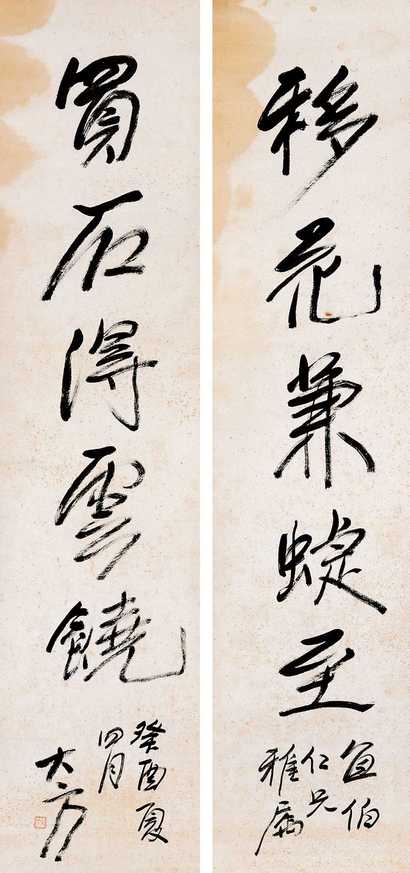 移花兼蜨至
宣伯
仁兄
雅屬
買石得雲饒
癸酉夏
四月
大方